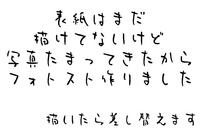 表紙はまだ
描けてないけど
写真たまってきたから
フォトスト作りました
描いたら差し替えます